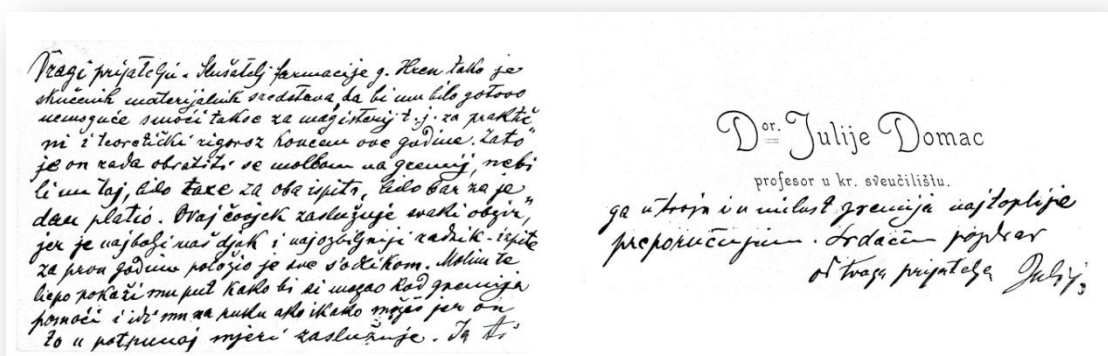 Dragi prijatelju. Slušatelj farmacije g. Hren tako je
skučenih materijalnih sredstava da bi mu bilo gotovo
nemoguće smoći takse za magisterij t.j. za prakti
ni i teoretički rigoroz koncem ove godine. Zato
je on rada obratiti se molbom na gremij, nebi
li mu taj, bilo taxe za oba ispita, bilo bar za je
dan platio. Ovaj čovjek zaslužuje svaki obzir,
jer je najbolji naš djak i najozbiljniji radnik - ispite
za prvu godinu položio je sve s'odlikom. Molim te
liepo pokaži mu put kako bi si mogao kod gremija
pomoći i idi mu na ruku ako ikako možeš jer on
to u potpunoj mjeri zaslužuje. Ja ti
Dor. Julije Domac
profesor u kr. sveučilištu.
ga u tvoju i u milost gremija najtoplije
preporučujem. Srdačan pozdrav
od tvoga prijatelja Julija